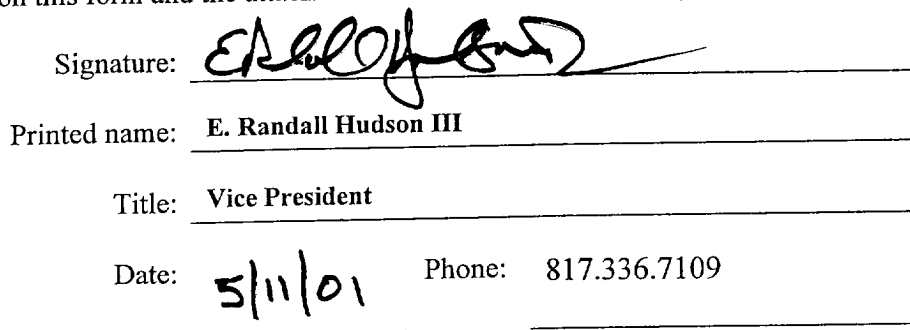 on this form and the
Signature: E Randall Hudson III
Printed name: E. Randall Hudson III
Title: Vice President
Date: 5/11/01 Phone: 817.336.7109